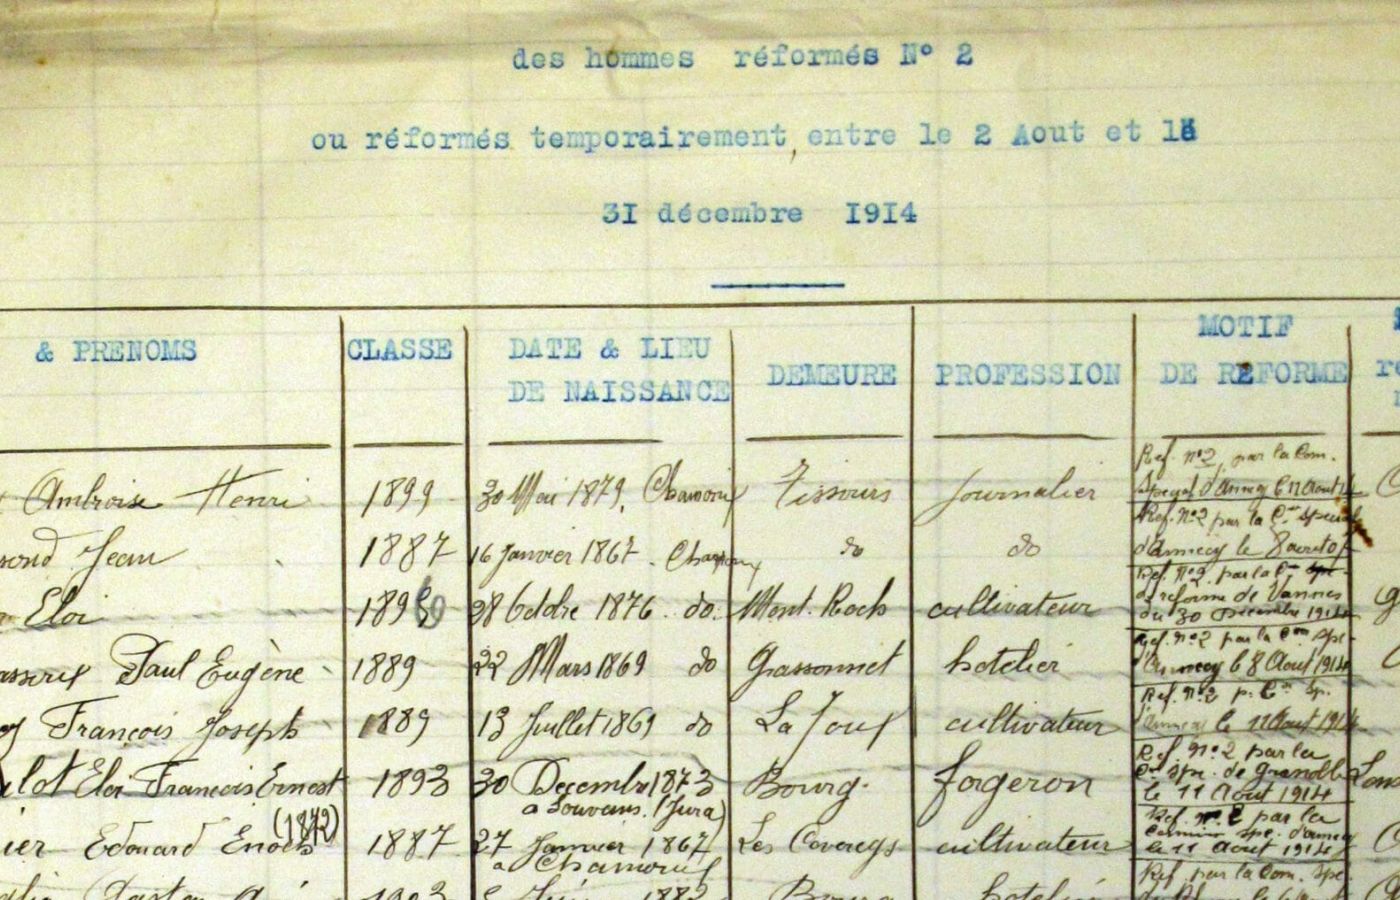 des hommes réformés N° 2
ou réformés temporairement, entre le 2 Aout et le
31 décembre 1914
& PRENOMS CLASSE DATE & LIEU DE NAISSANCE DEMEURE PROFESSION MOTIF DE REFORME
Ambroise Henri 1899 30 Mai 1879. Chamonix Tissours journalier Ref. n°2, par la Com. Special d'Annecy le 11 Aout 14
Jean 1887 16 Janvier 1867. Chamonix do do Ref. n°2 par la Con Special d'Annecy le 8 aout
Eloi 189 28 Octobre 1876. do. Mont. Roch cultivateur Ref. n°2. par la Con spe de reforme de Vannes du 30 Decembre 1914
Paul Eugène 1889 22 Mars 1869 do Grassonnet hotelier Ref. n°2 par la Com Spe d'Annecy le 8 Aout 1914
François Joseph 1889 13 Juillet 1869 do La Joux cultivateur Ref. n°2 p. Con Sp. d'Annecy le 11 Aout 1914
lot Eloi François Ernest 1893 30 Decembre 1873 a Louvans. (Jura) Bourg. forgeron Ref. n°2 par la Con spe. de Grenoble le 11 Aout 1914
ier Edouard Enoch (1872) 1887 27 Janvier 1867 a Chamonix Les cultivateur Ref. n° 2 par la spe. d'annecy le 11 aout 1914
1882 Bourg hotelier Ref. par la Com. Spe.